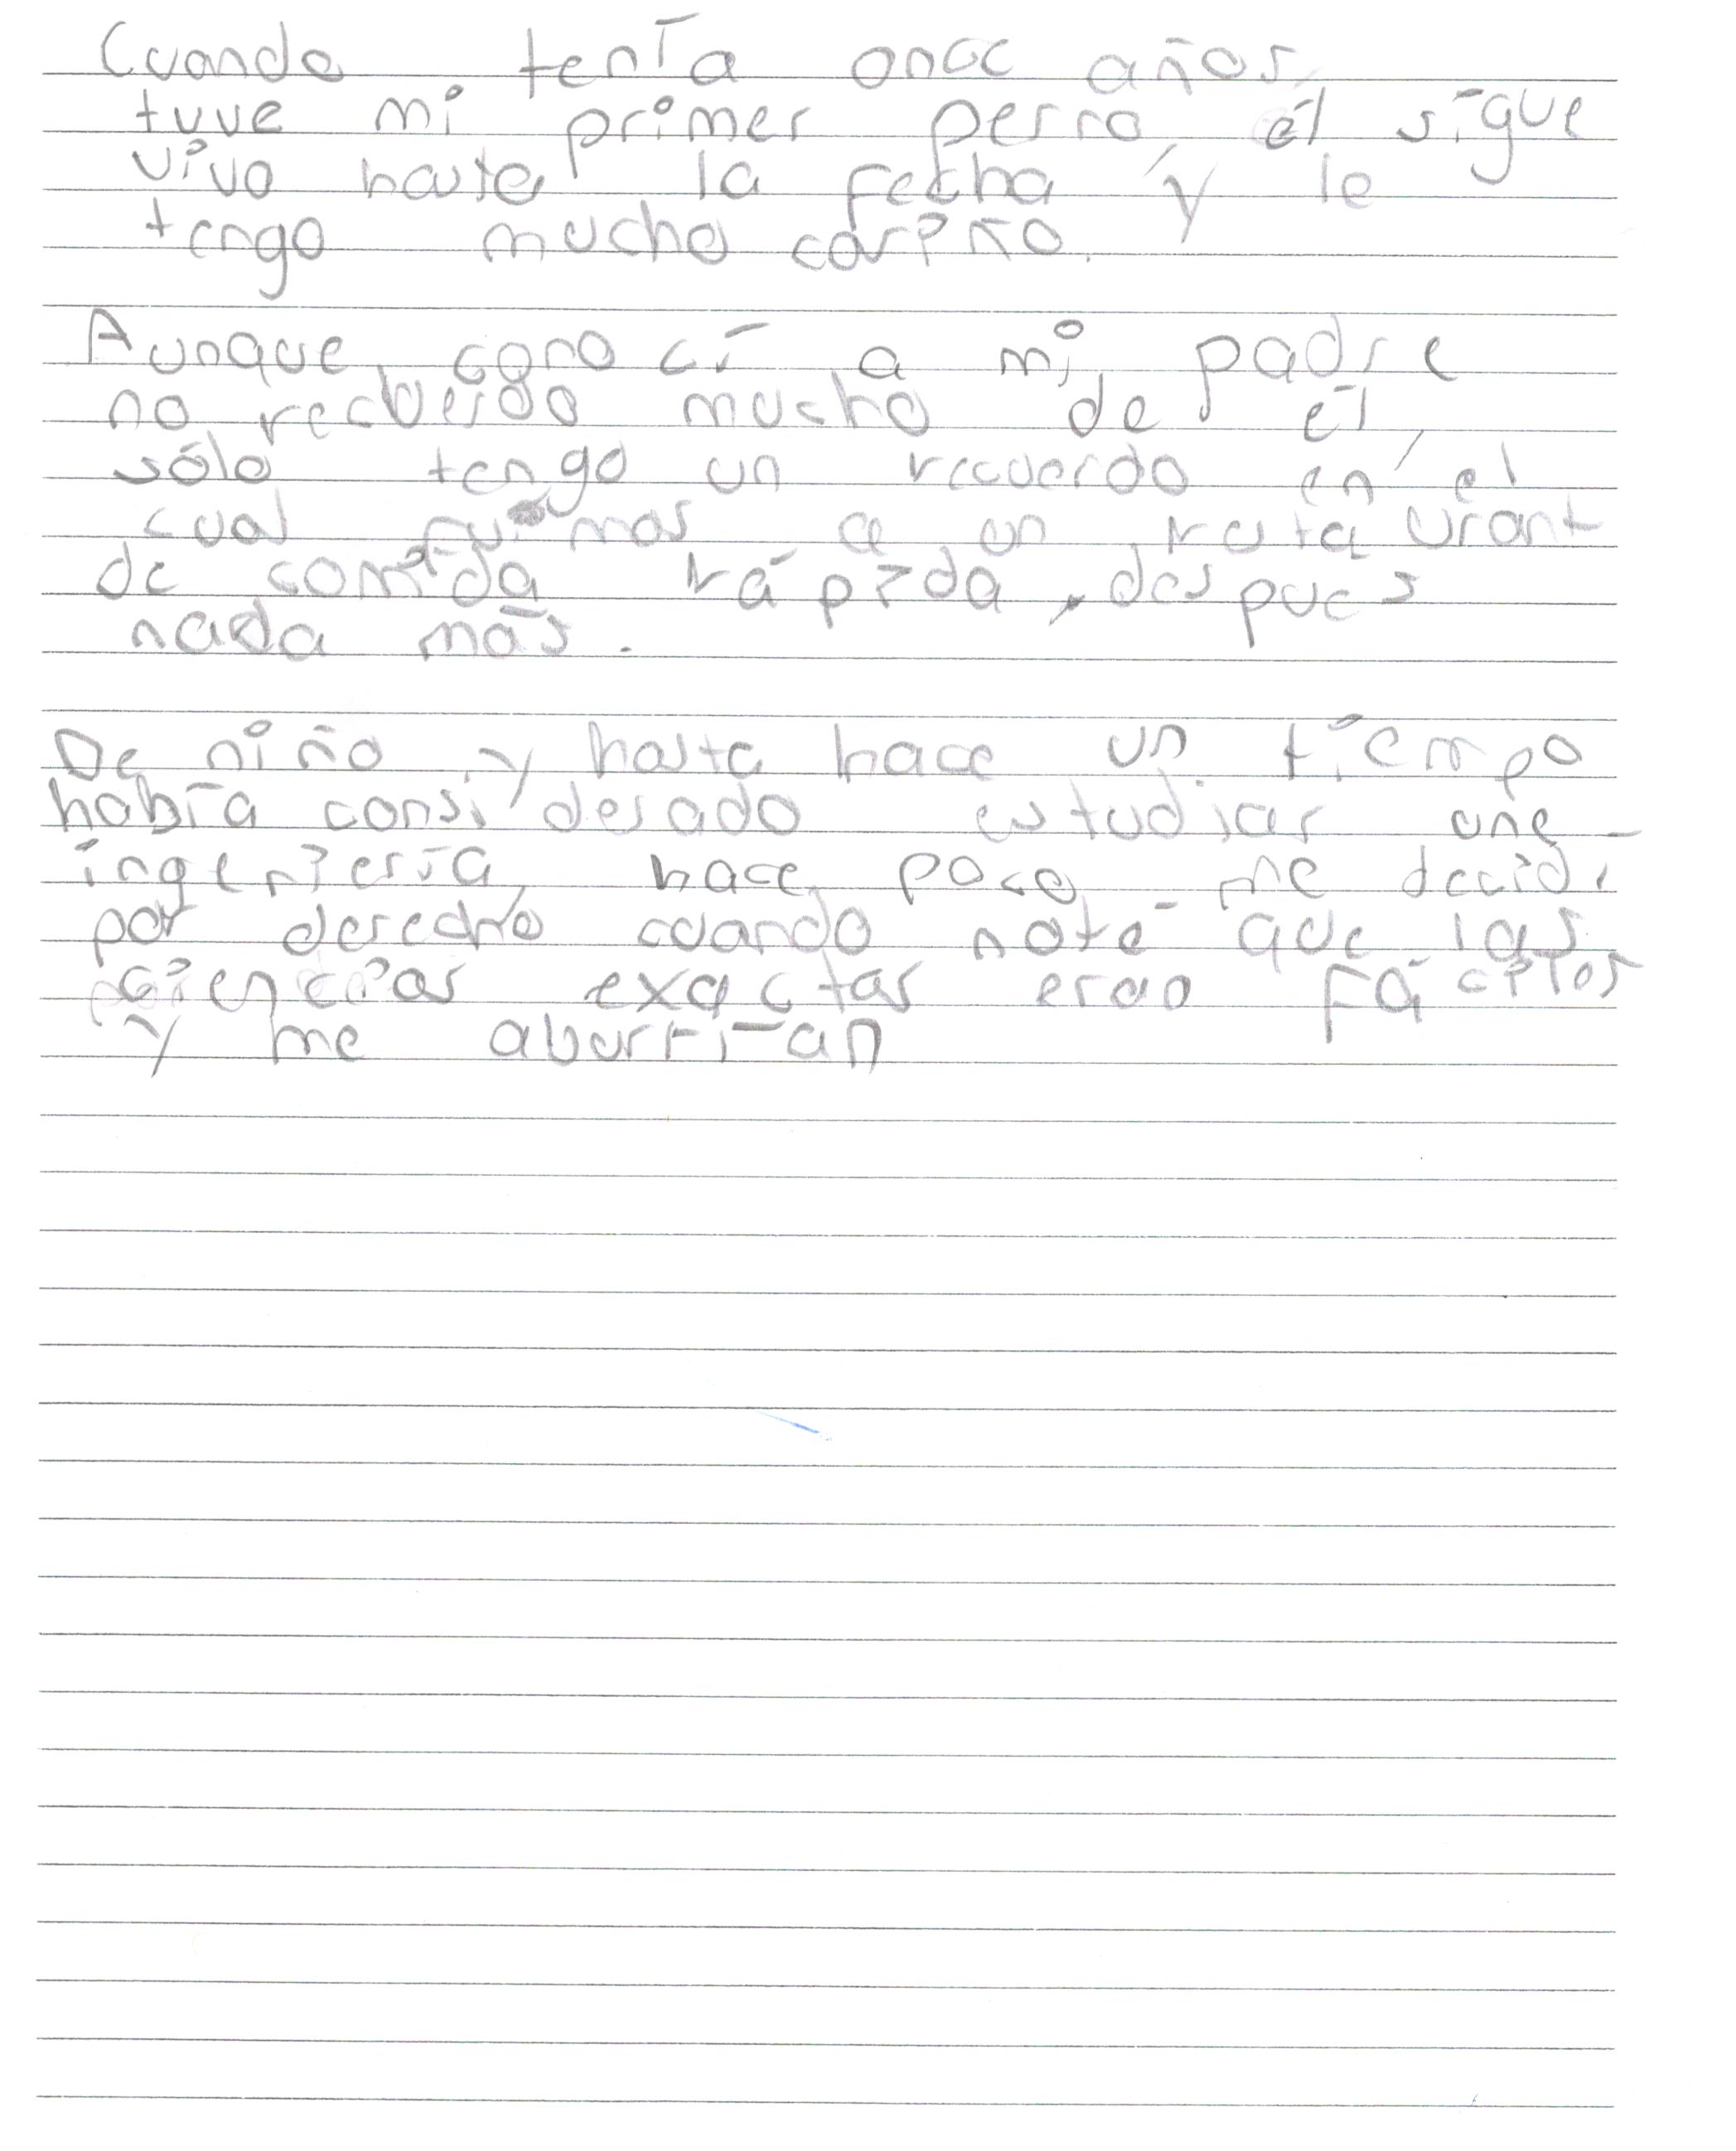 Cuando tenía once años,
tuve mi primer perro, él sigue
vivo hasta la fecha y le
tengo mucho cariño.
Aunque conocí a mi padre
no recuerdo mucho de él,
sólo tengo un recuerdo en el
cual fuimos a un restaurant
de comida rápida, después
nada más.
De niño y hasta hace un tiempo
había considerado estudiar una
ingeniería, hace poco me decidí
por derecho cuando noté que las
ciencias exactas eran fáciles
y me aburrían